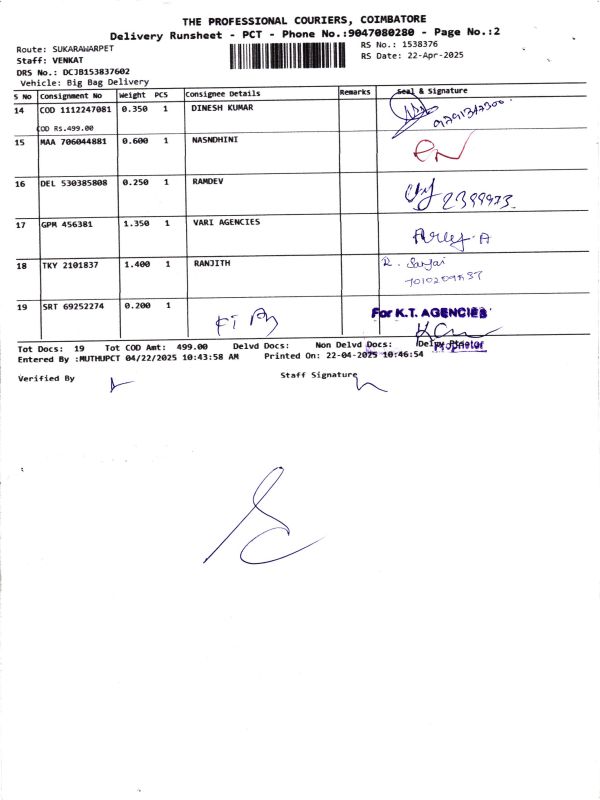 THE PROFESSIONAL COURIERS, COIMBATORE
Delivery Runsheet - PCT - Phone No.:9047080280 - Page No.:2
Route: SUKARAWARPET
RS No.: 1538376
Staff: VENKAT
RS Date: 22-Apr-2025
DRS No.: DCJB153837602
Vehicle: Big Bag Delivery
S No Consignment No Weight PCS Consignee Details Remarks Seal & Signature
14 COD 1112247081 0.350 1 DINESH KUMAR
COD RS.499.00
15 MAA 706044881 0.600 1 NASNDHINI
16 DEL 530385808 0.250 1 RAMDEV
2399973
17 GPM 456381 1.350 1 VARI AGENCIES
18 TKY 2101837 1.400 1 RANJITH R. Sanjai
19 SRT 69252274 0.200 1
For K.T. AGENCIES
Proprietor
Tot Docs: 19 Tot COD Amt: 499.00 Delvd Docs: Non Delvd Docs:
Entered By :MUTHUPCT 04/22/2025 10:43:58 AM Printed On: 22-04-2025 10:46:54
Verified By Staff Signature